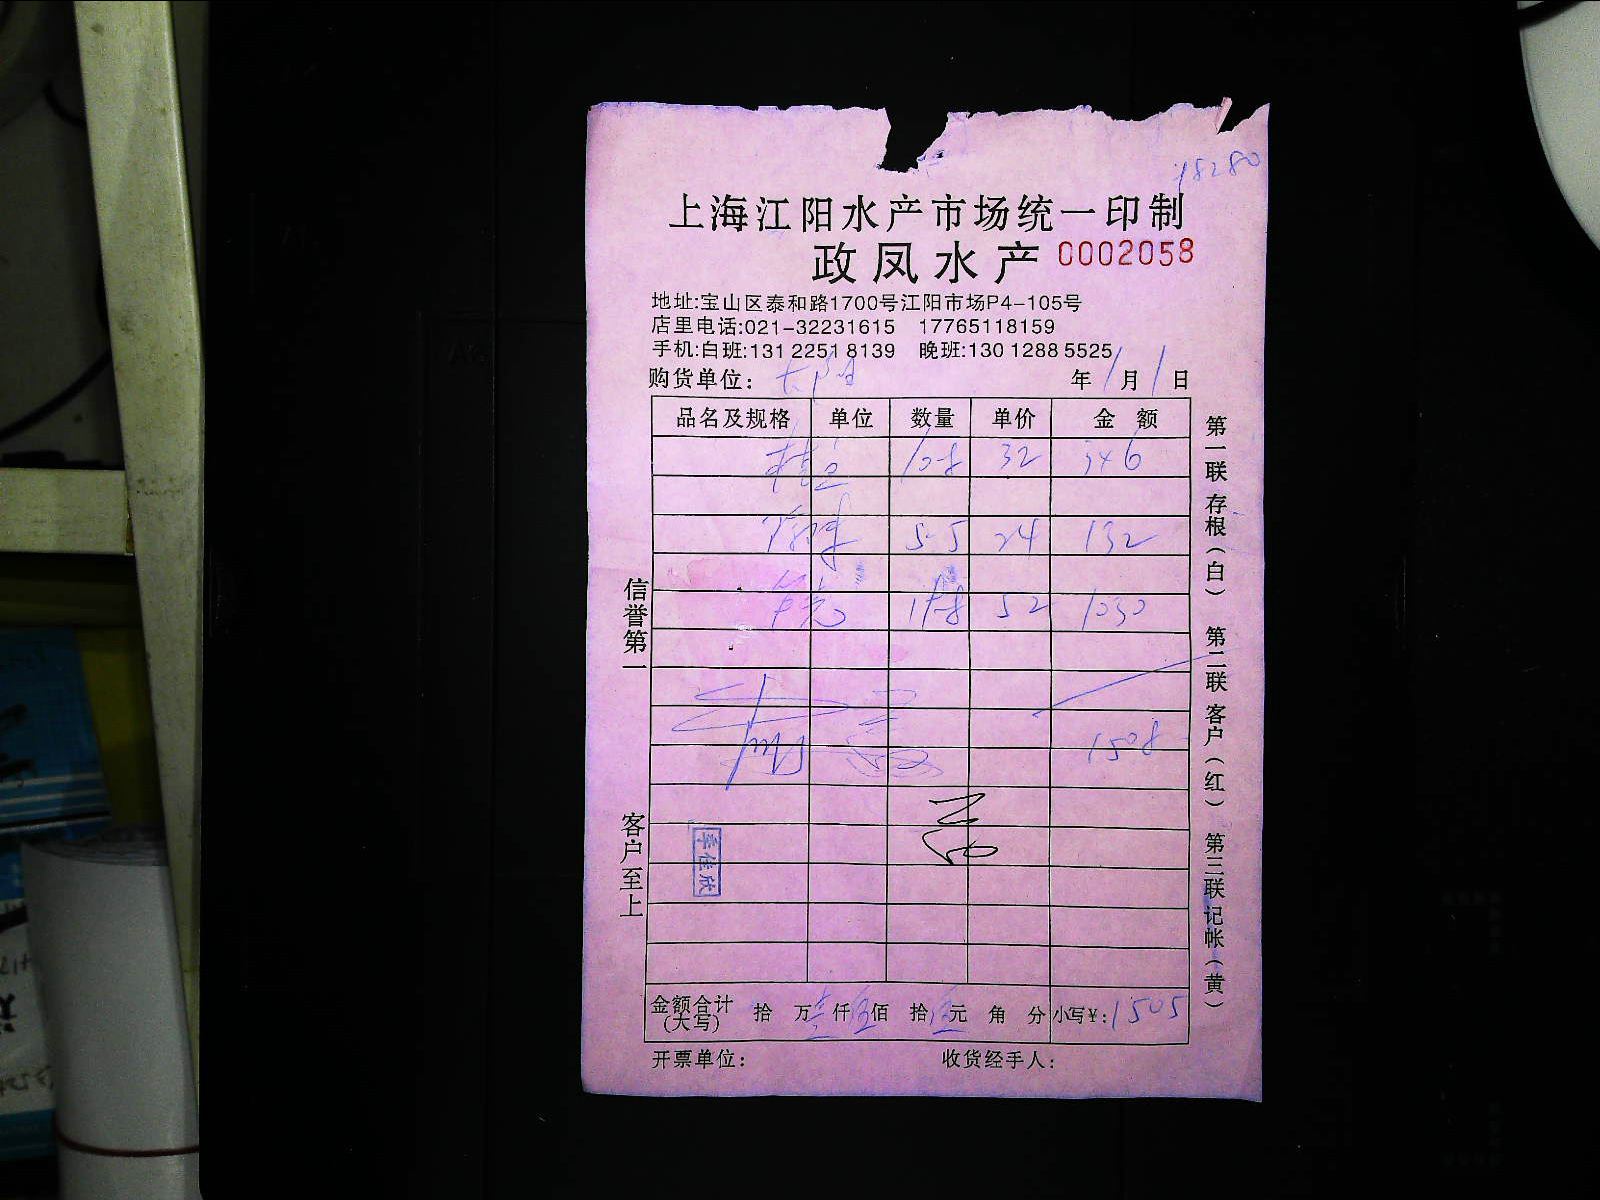 18280
上海江阳水产市场统一印制
政凤水产 0002058
地址:宝山区泰和路1700号江阳市场P4-105号
店里电话:021-32231615 17765118159
手机:白班:131 2251 8139 晚班:130 1288 5525
购货单位: 年 1 月 1 日
品名及规格 单位 数量 单价 金 额
10.8 32 346
5.5 24 132
19.8 52 1030
1508
季佳欣
金额合计(大写) 拾 万 壹 仟 伍 佰 拾 伍 元 角 分 小写¥: 1505
开票单位: 收货经手人:
信誉第一
客户至上
第一联 存根(白) 第二联 客户(红) 第三联 记帐(黄)